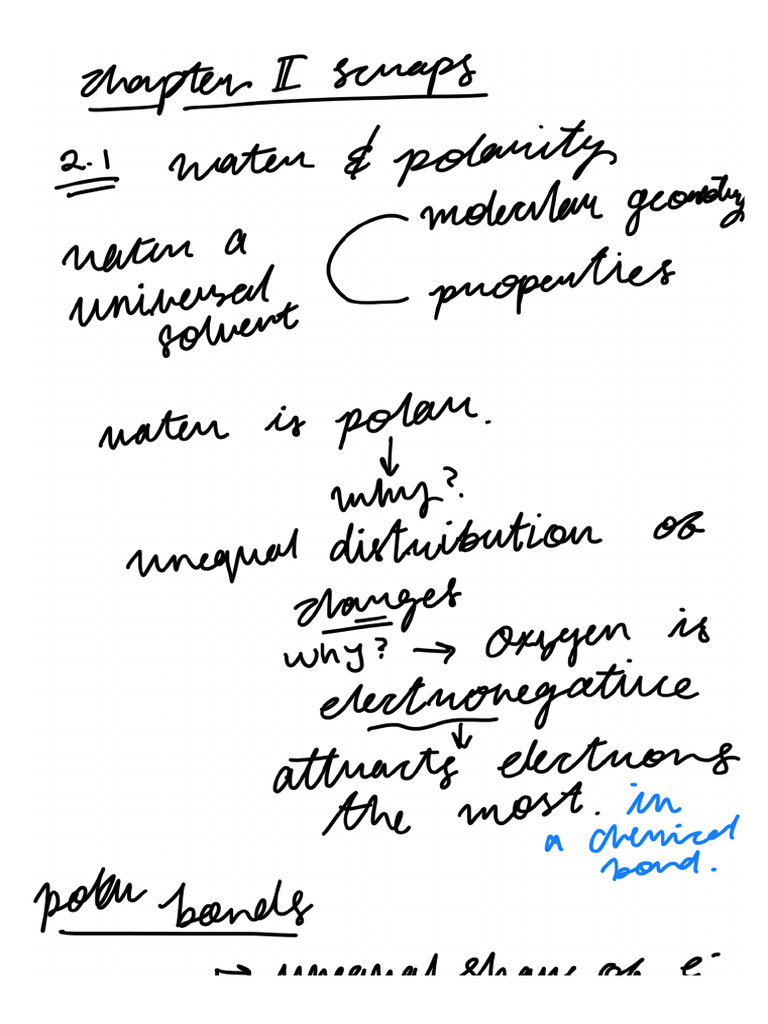 chapter II scraps
2.1 water & polarity
water a universal solvent
molecular geometry
properties
water is polar.
↓
why?
unequal distribution of
charges
why? → oxygen is
electronegative
↓
attracts electrons
the most. in
a chemical
bond.
polar bonds
→ unequal share of e-